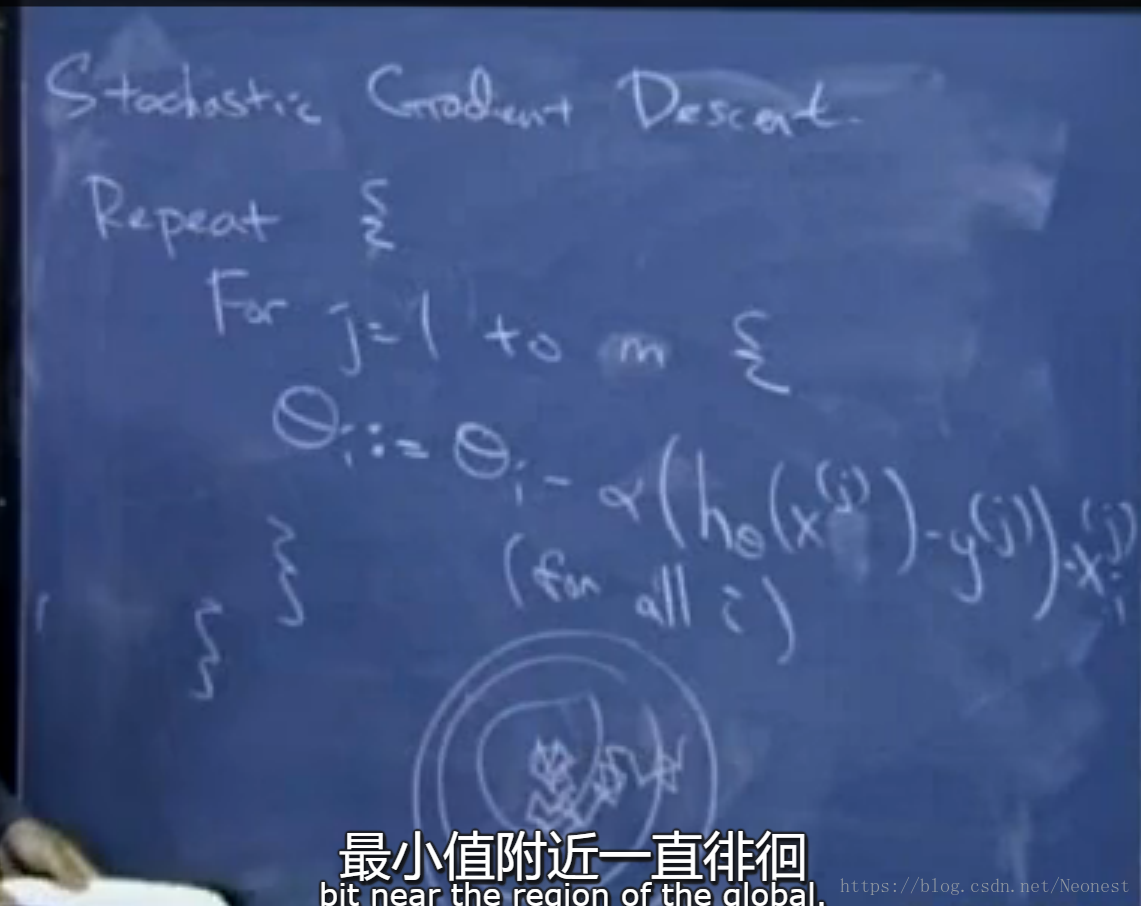 Stochastic Gradient Descent.
Repeat {
For j=1 to m {
θᵢ := θᵢ - α(h_θ(x^(j)) - y^(j))·xᵢ^(j)
(for all i)
}
}
最小值附近一直徘徊
bit near the region of the global.
https://blog.csdn.net/Neonest